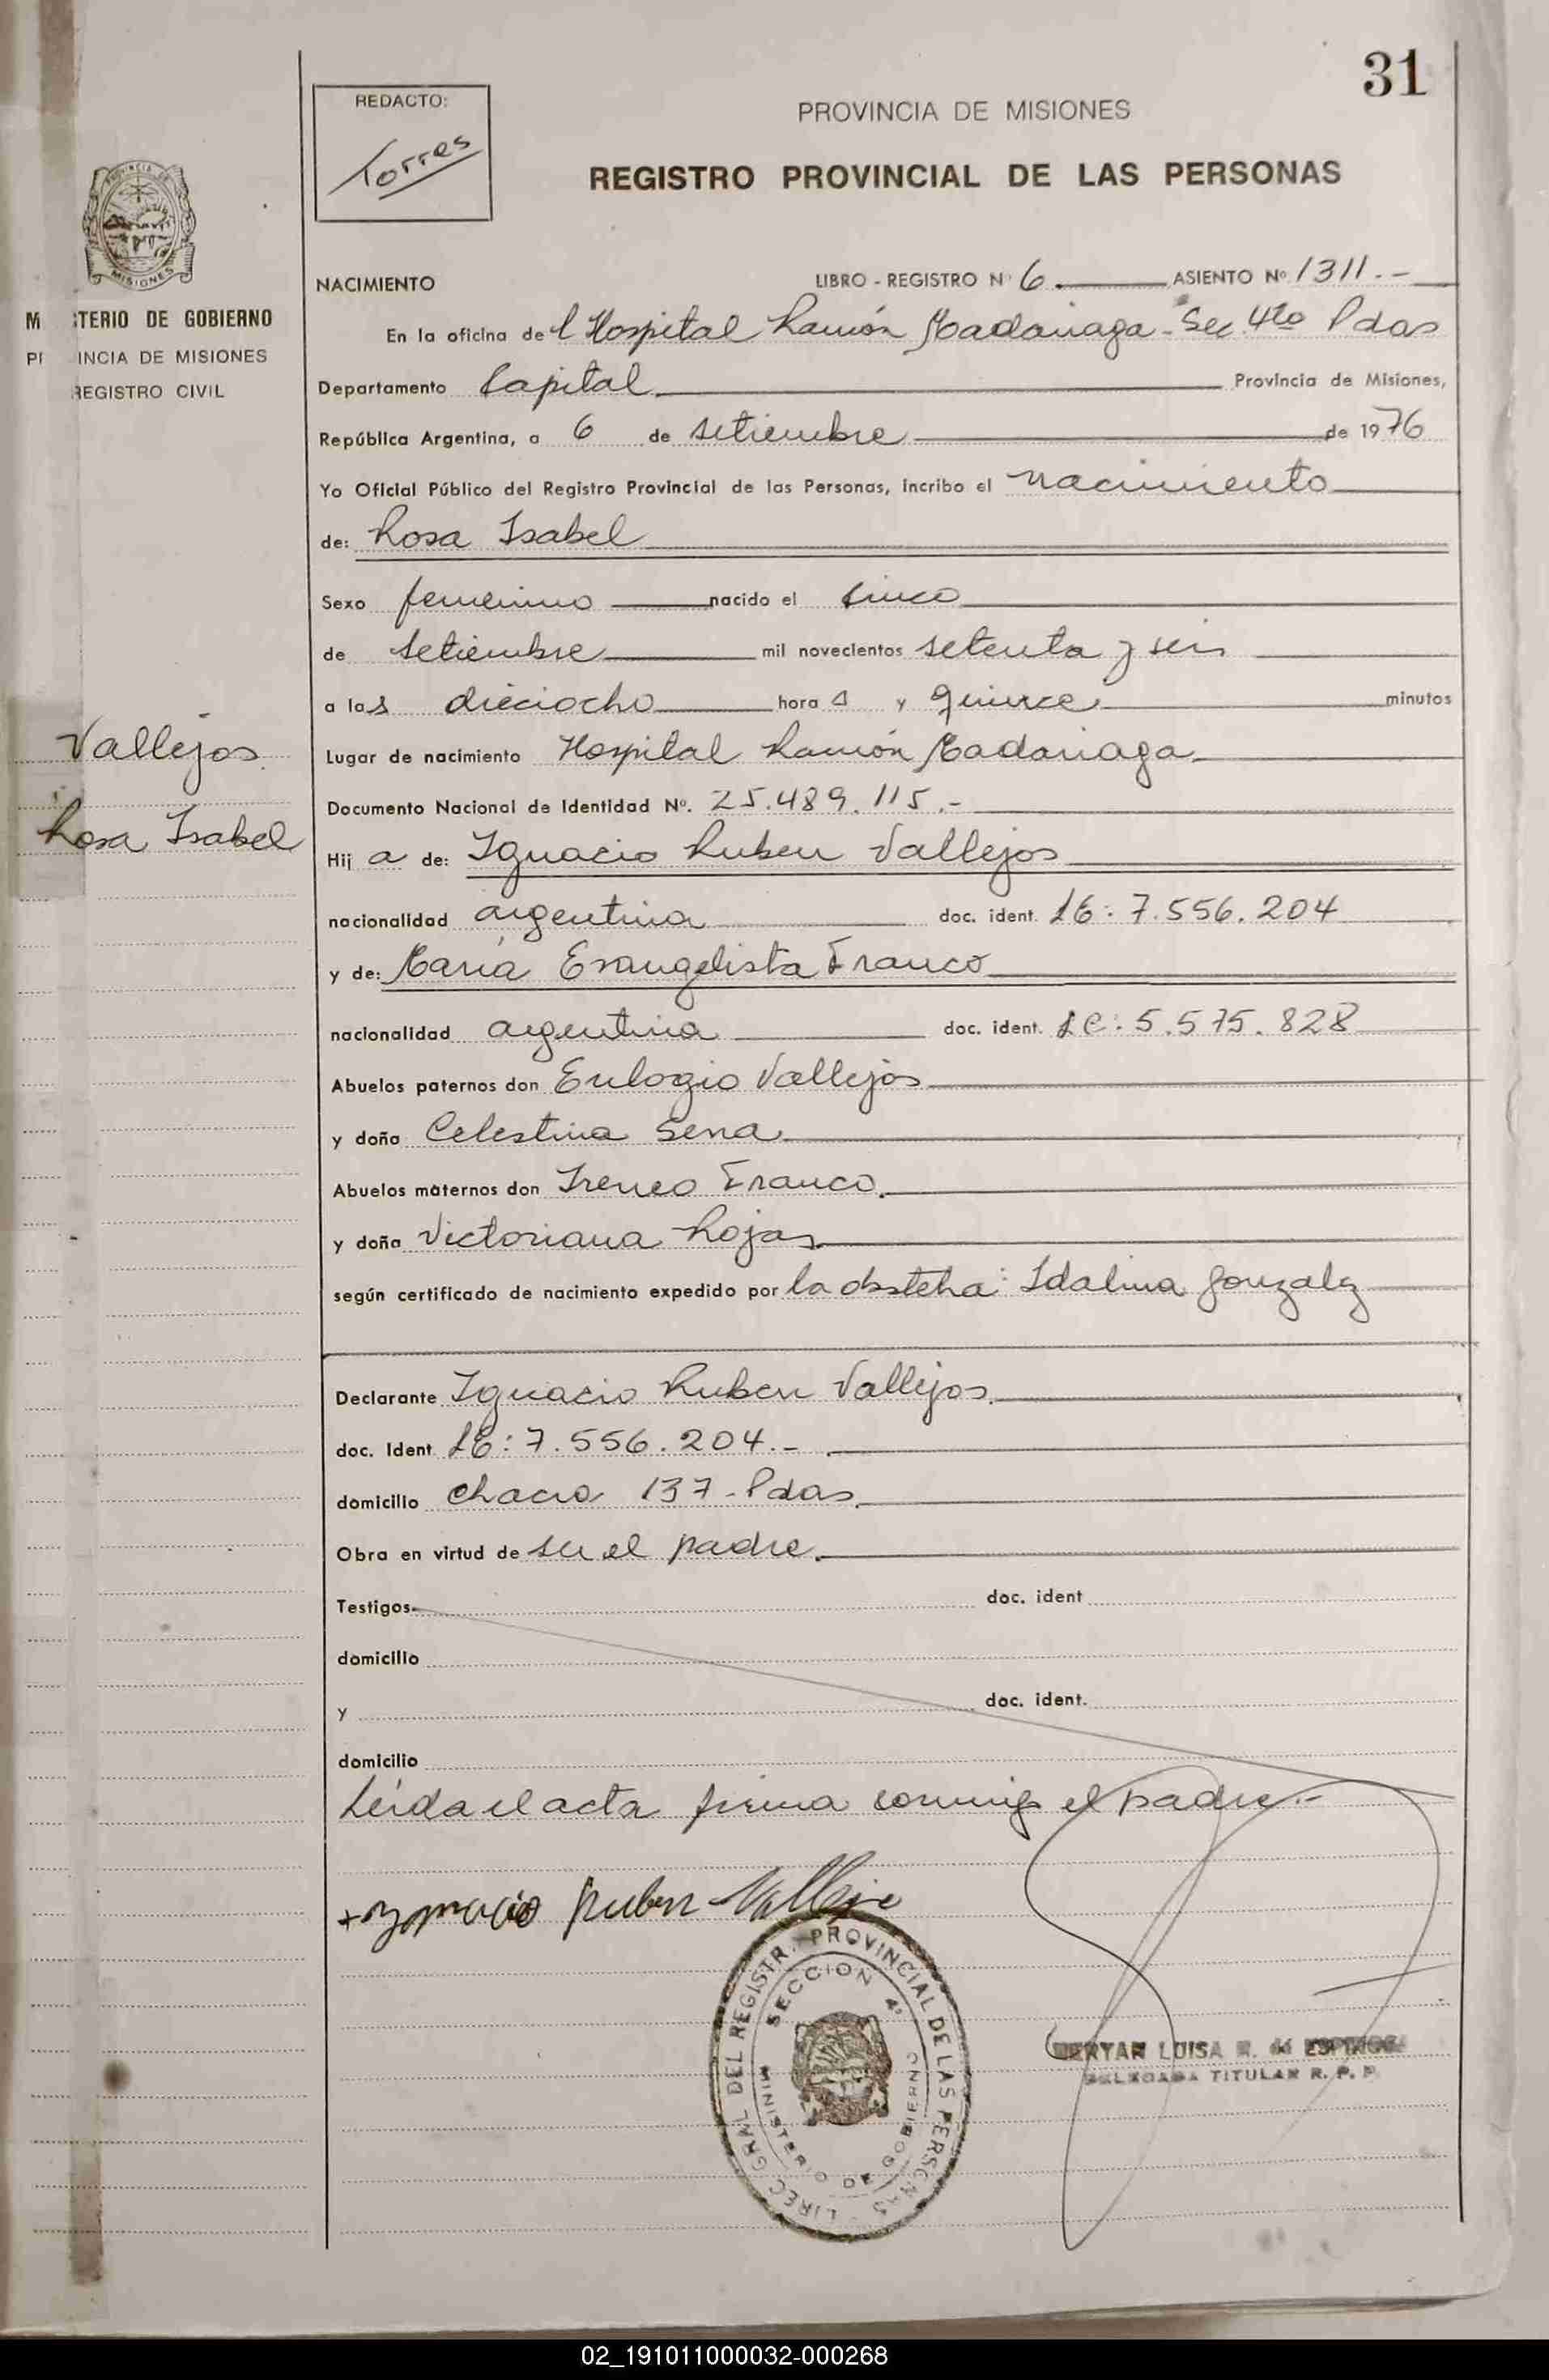 31
REDACTO:
Torres
PROVINCIA DE MISIONES
REGISTRO PROVINCIAL DE LAS PERSONAS
MISIONES
M STERIO DE GOBIERNO
PR INCIA DE MISIONES
REGISTRO CIVIL
NACIMIENTO LIBRO - REGISTRO Nº 6. ASIENTO Nº 1311.-
En la oficina del Hospital Ramón Madariaga - Sec 4ta Pdas
Departamento Capital. Provincia de Misiones,
República Argentina, a 6 de setiembre de 1976
Yo Oficial Público del Registro Provincial de las Personas, incribo el nacimiento
de: Rosa Isabel
Sexo femenino nacido el cinco
de setiembre mil novecientos setenta y seis
a las dieciocho hora s y quince minutos
Vallejos
Rosa Isabel
Lugar de nacimiento Hospital Ramón Madariaga.
Documento Nacional de Identidad Nº. 25.489.115.-
Hij a de: Ignacio Ruben Vallejos
nacionalidad argentina doc. ident. LE: 7.556.204
y de: María Evangelista Franco
nacionalidad argentina doc. ident. LC: 5.575.828
Abuelos paternos don Eulogio Vallejos
y doña Celestina Sena.
Abuelos maternos don Ireneo Franco.
y doña Victoriana Rojas
según certificado de nacimiento expedido por la obstetra: Idalina Gonzalez
Declarante Ignacio Ruben Vallejos.
doc. Ident LE: 7.556.204.-
domicilio chacra 137 - Pdas.
Obra en virtud de ser el padre.
Testigos doc. ident
domicilio
y doc. ident.
domicilio
Leída el acta firma conmigo el padre.-
Ignacio Ruben Vallejo
DIREC. GRAL DEL REGISTR. PROVINCIAL DE LAS PERSONAS
SECCION 4º
MINISTERIO DE GOBIERNO
LUISA R. de ESPINOSA
DELEGADA TITULAR R. P. P.
02_191011000032-000268